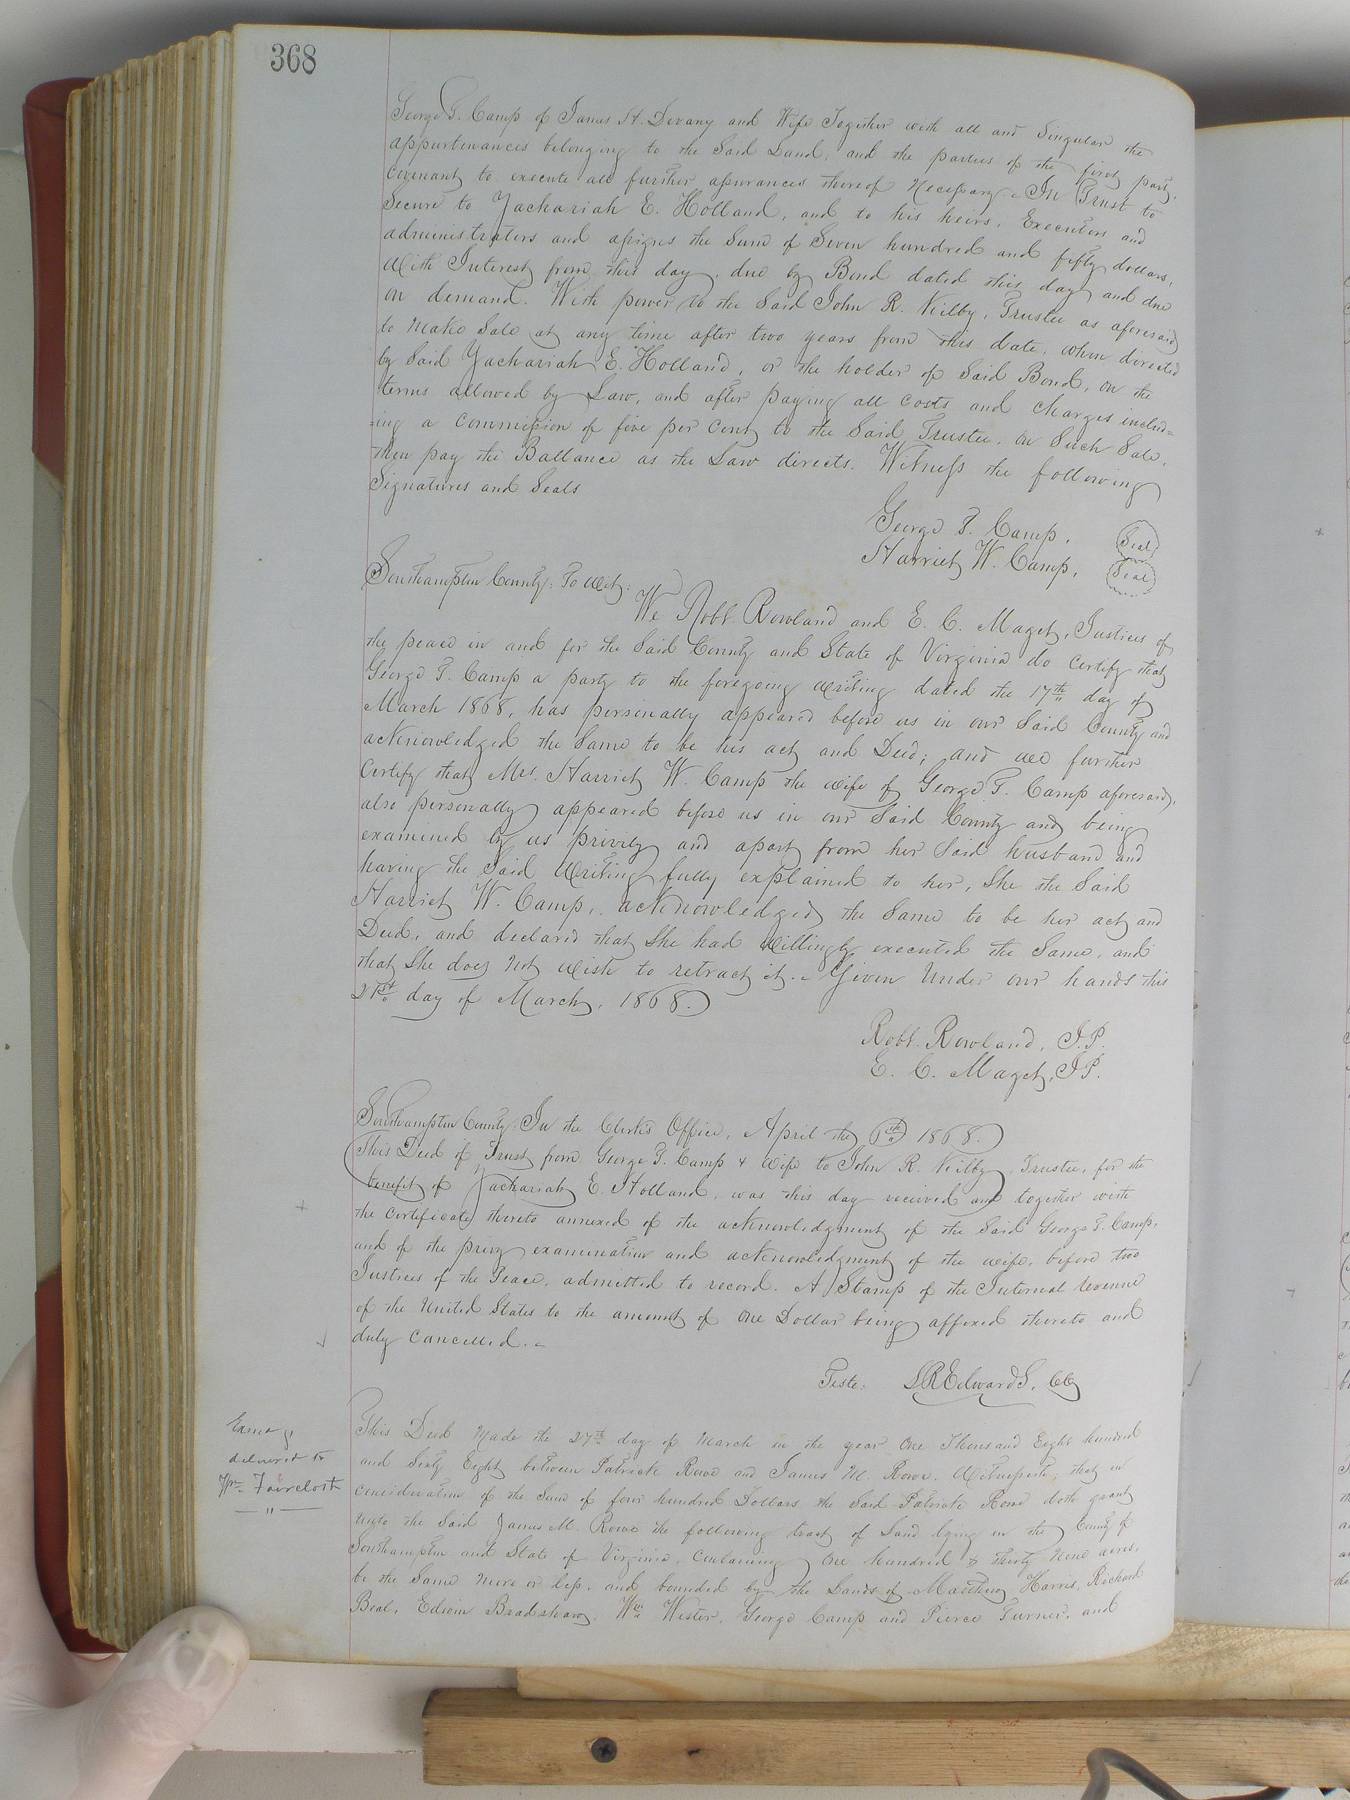 368
George T. Camp of James H. Devany and Wife Together with all and Singular the
appurtenances belonging to the Said Land, and the parties of the first part,
Covenant to execute all further assurances thereof Necessary - In Trust to
Secure to Zachariah E. Holland, and to his heirs, Executors and
administrators and assigns the Sum of Seven hundred and fifty dollars,
With Interest from this day, due by Bond dated this day and due
on demand. With power to the Said John R. Kilby, Trustee as aforesaid
to Make Sale at any time after two years from this date, when directed
by Said Zachariah E. Holland, or the holder of Said Bond, on the
terms allowed by Law, and after paying all costs and charges includ=
=ing a Commission of five per Cent to the Said Trustee, on Such Sale,
then pay the Ballance as the Law directs. Witness the following
Signatures and Seals
George T. Camp, Seal
Harriet W. Camp, Seal
Southampton County: To Wit:
We Robt. Rowland and E. C. Maget, Justices of
the peace in and for the Said County and State of Virginia do Certify that
George T. Camp a party to the foregoing writing dated the 17th day of
March 1868, has personally appeared before us in our Said County and
acknowledged the Same to be his act and Deed; and we further
Certify that Mrs. Harriet W. Camp the wife of George T. Camp aforesaid,
also personally appeared before us in our Said County and being
examined by us privily and apart from her Said husband and
having the Said Writing fully explained to her, She the Said
Harriet W. Camp, acknowledged the Same to be her act and
Deed, and declared that She had Willingly executed the Same, and
that She does Not wish to retract it. - Given Under our hands this
21st day of March, 1868.
Robt. Rowland, J.P.
E. C. Maget, JP.
Southampton County: In the Clerk's Office, April the 6th 1868.
This Deed of Trust from George T. Camp & wife to John R. Kilby, Trustee, for the
benefit of Zachariah E. Holland, was this day received and together with
the Certificate thereto annexed of the acknowledgment of the Said George T. Camp,
and of the privy examination and acknowledgment of the wife, before two
Justices of the Peace, admitted to record. A Stamp of the Internal revenue
of the United States to the amount of One Dollar being affixed thereto and
duly Cancelled. -
Teste: LREdwardS, CC
delivered to
Wm. Faircloth
"
This Deed Made the 27th day of March in the year One Thousand Eight hundred
and Sixty Eight between Patrick Rowe and James M. Rowe. Witnesseth, that in
Consideration of the Sum of four hundred Dollars the Said Patrick Rowe doth grant
unto the Said James M. Rowe the following tract of Land lying in the County of
Southampton and State of Virginia, Containing One hundred & thirty Nine acres,
be the Same More or less, and bounded by the Lands of Matthew Harris, Richard
Beal, Edwin Bradshaw, Wm Wester, George Camp and Pierce Turner, and